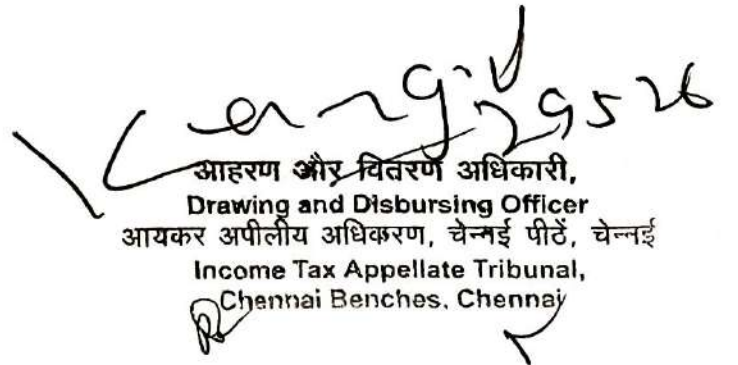 29526
आहरण और वितरण अधिकारी,
Drawing and Disbursing Officer
आयकर अपीलीय अधिकरण, चेन्नई पीठें, चेन्नई
Income Tax Appellate Tribunal,
Chennai Benches, Chennai